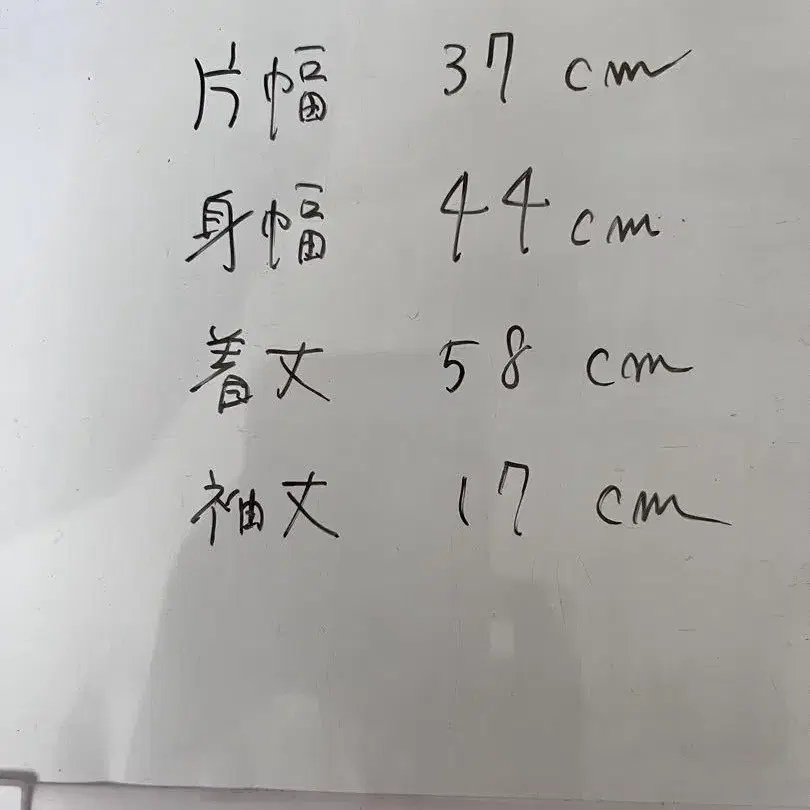 片幅 37 cm
身幅 44 cm
着丈 58 cm
袖丈 17 cm